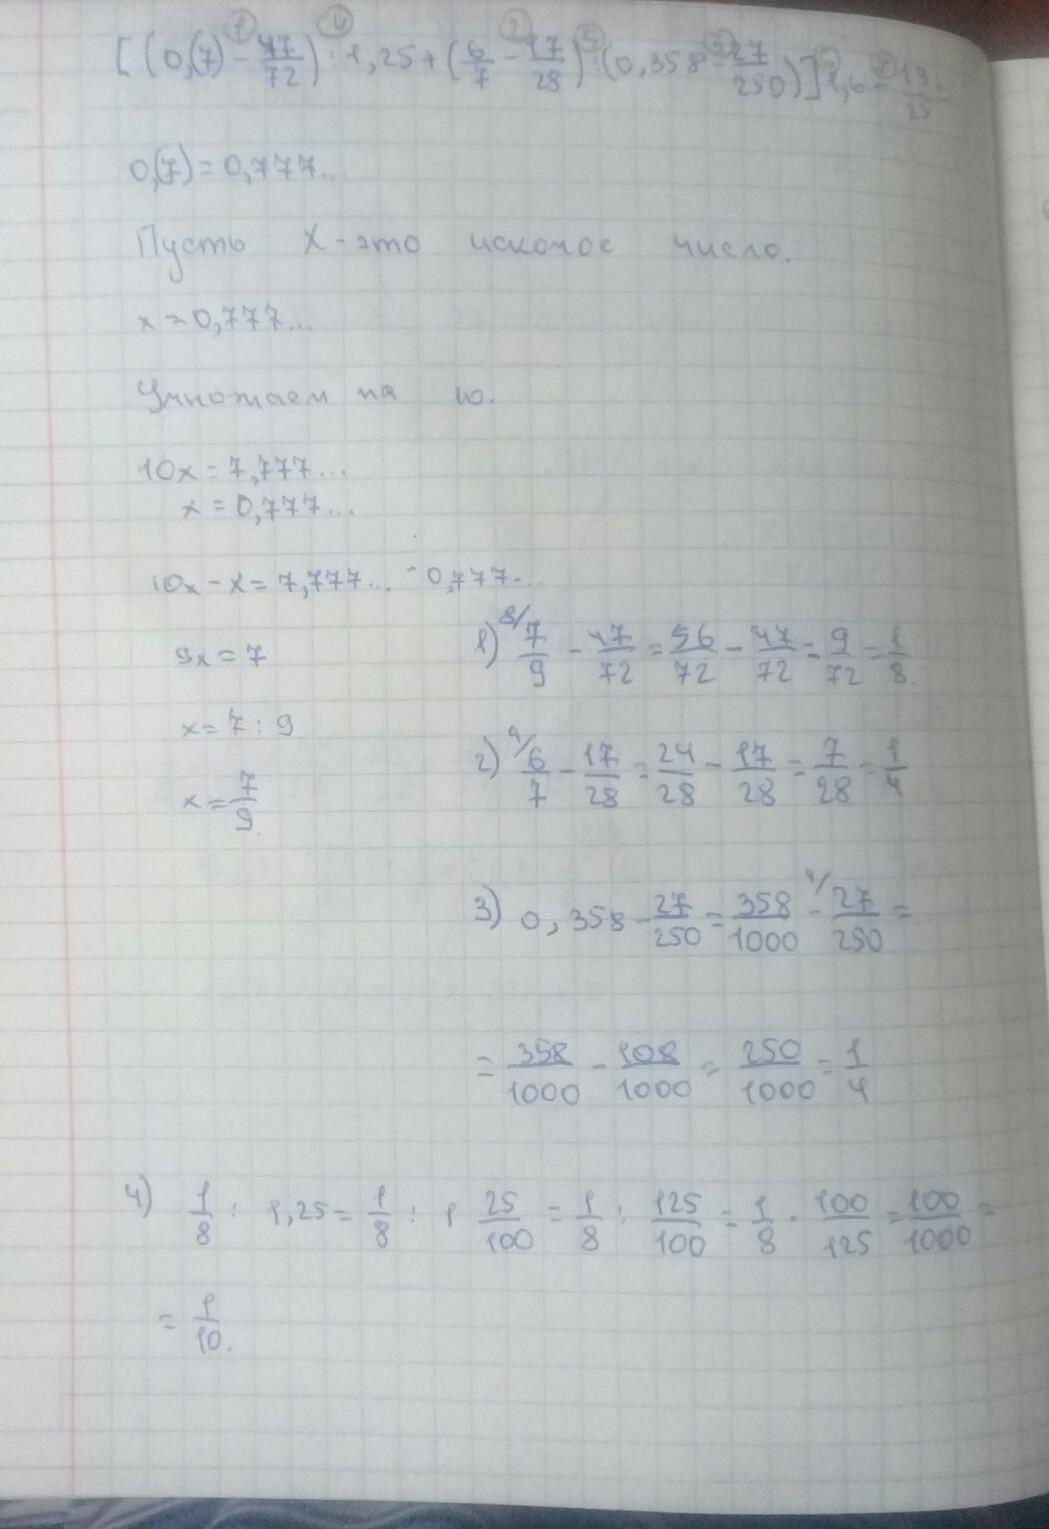 [(0,(7) - 47/72) : 1,25 + (6/7 - 17/28) : (0,358 - 27/250)] 1,6 - 19/25 =
0,(7) = 0,777...
Пусть х - это искомое число.
х = 0,777...
Умножаем на 10.
10х = 7,777...
х = 0,777...
10х - х = 7,777... - 0,777...
9х = 7
х = 7 : 9
х = 7/9.
1) 8/ 7/9 - 47/72 = 56/72 - 47/72 = 9/72 = 1/8.
2) 4/ 6/7 - 17/28 = 24/28 - 17/28 = 7/28 = 1/4
3) 0,358 - 27/250 = 358/1000 - 4/ 27/250 =
= 358/1000 - 108/1000 = 250/1000 = 1/4
4) 1/8 : 1,25 = 1/8 : 1 25/100 = 1/8 : 125/100 = 1/8 · 100/125 = 100/1000 =
= 1/10.